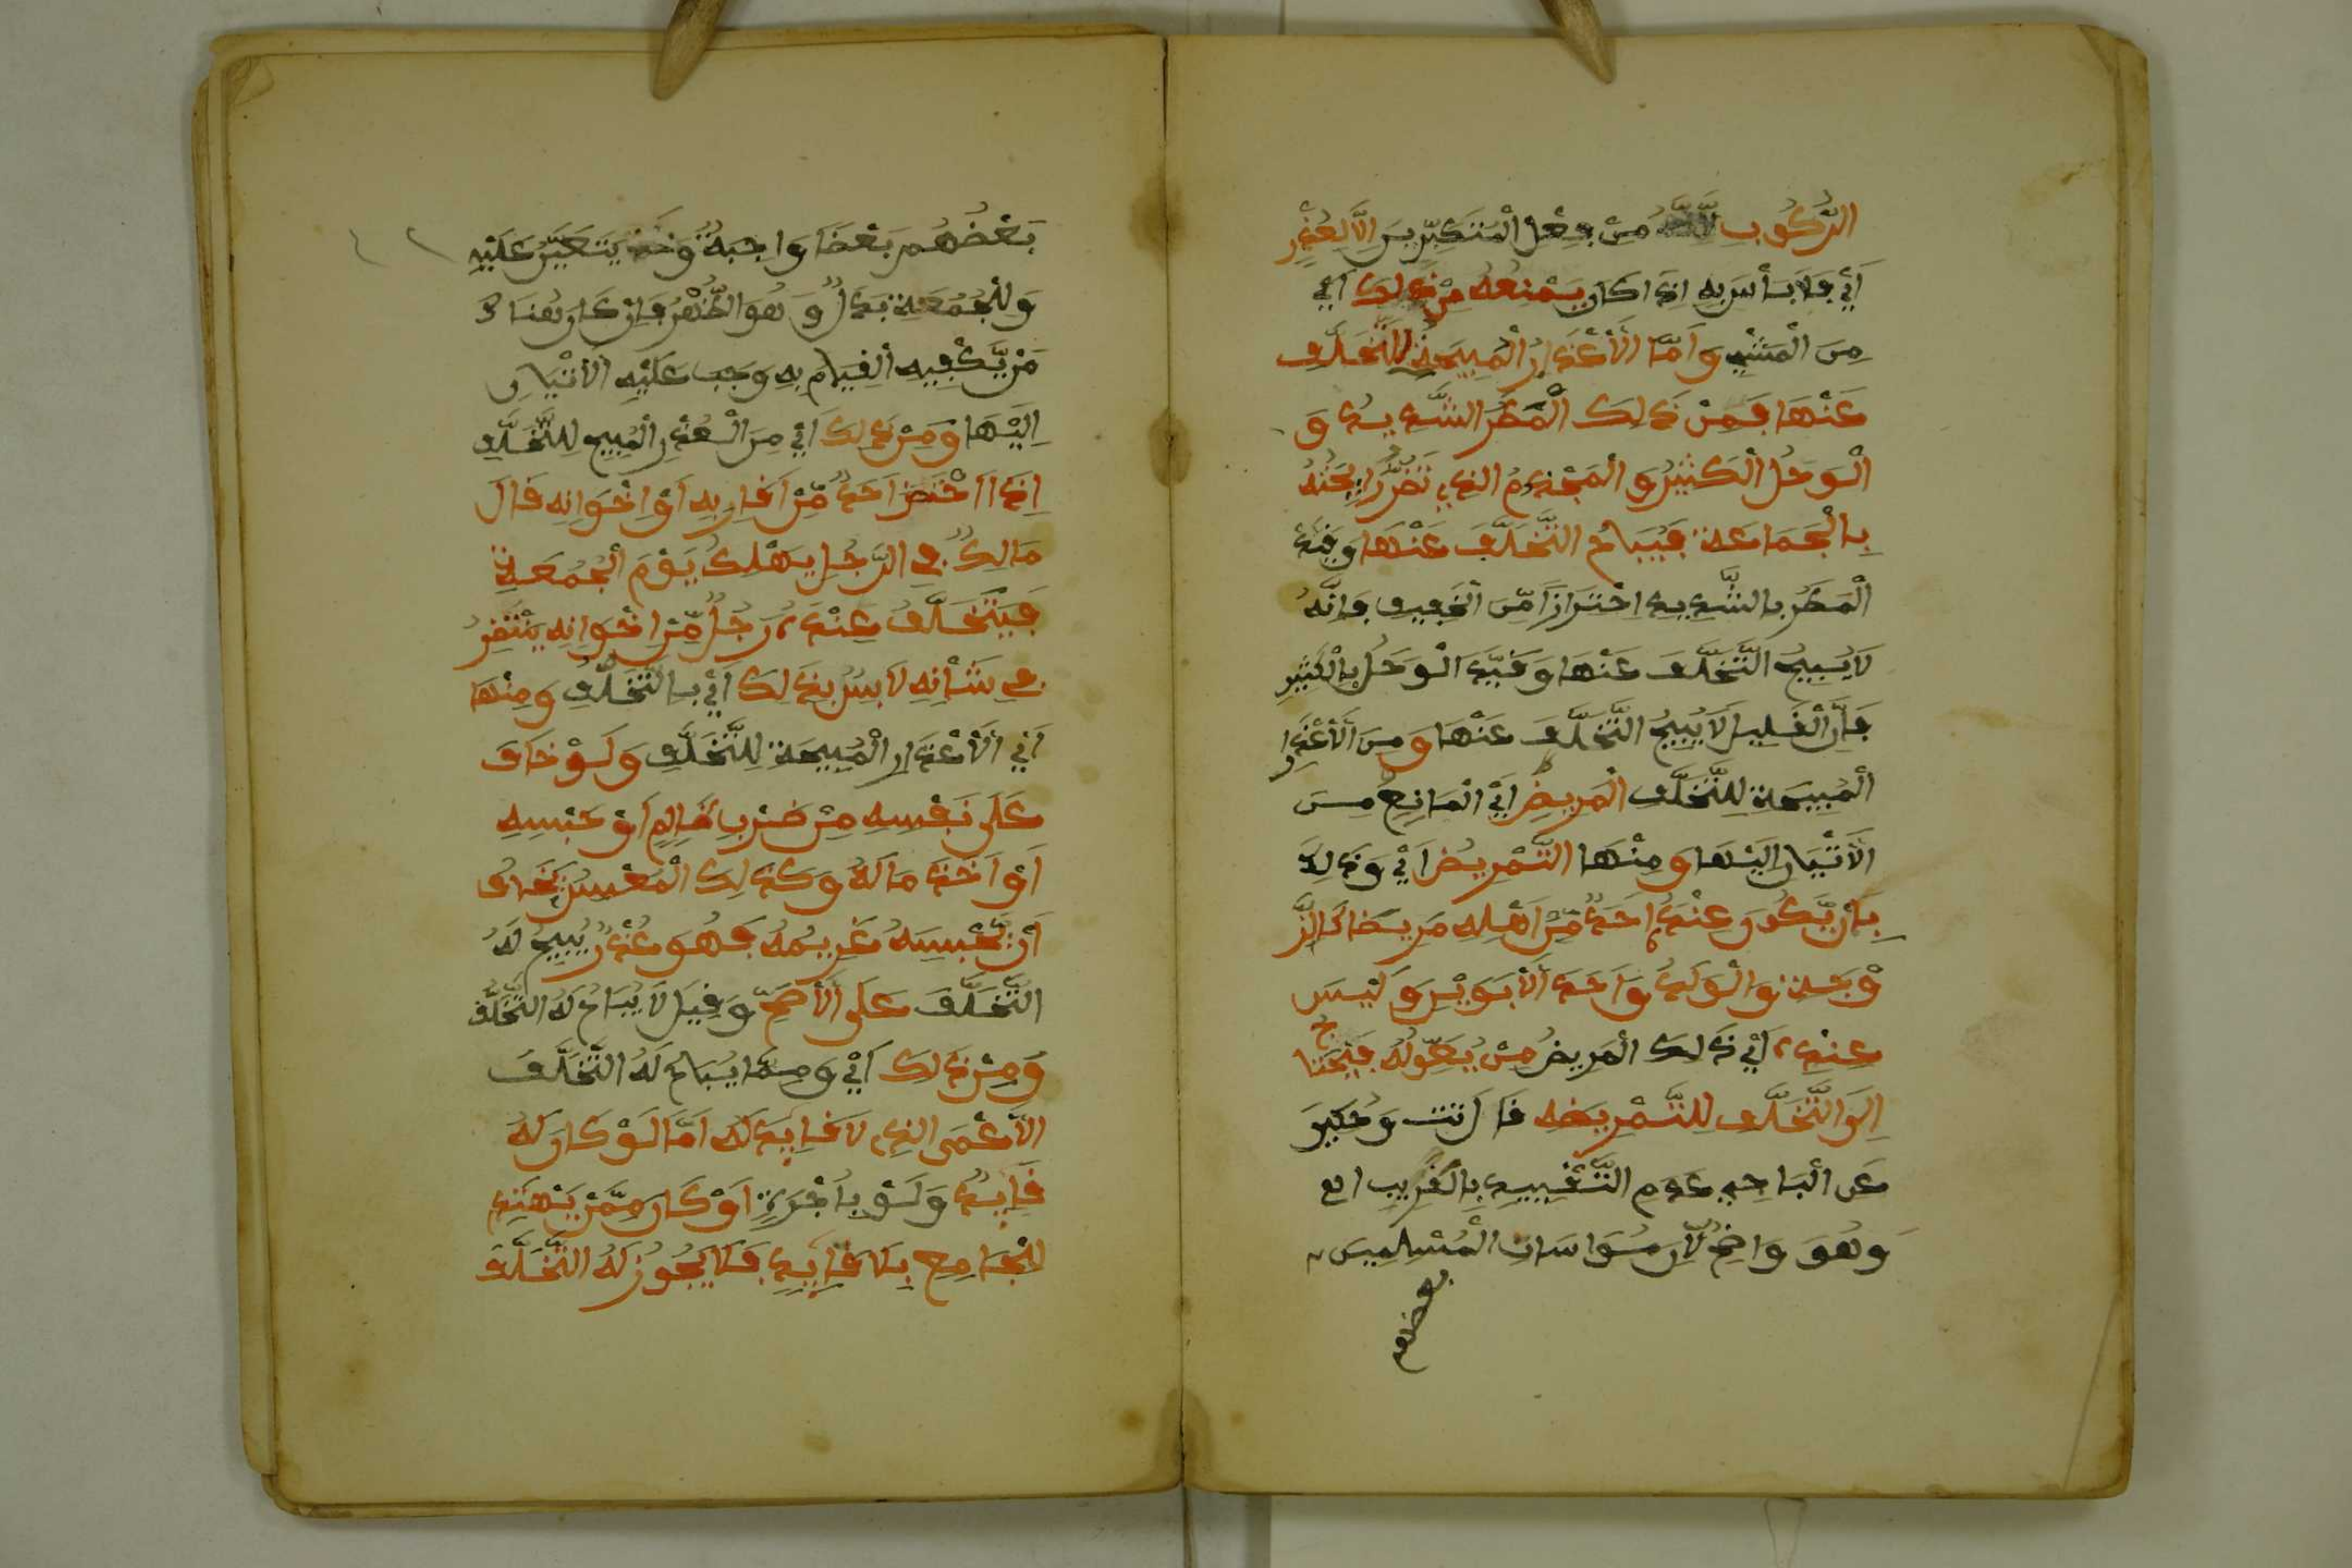 الرُّكُوبِ لِأَنَّهُ مِنْ فِعْلِ الْمُتَكَبِّرِينَ إِلَّا لِعُذْرٍ
أَيْ فَلَا بَأْسَ بِهِ إِذَا كَانَ يَمْنَعُهُ مِنْ ذَلِكَ أَيْ
مِنَ الْمَشْيِ وَأَمَّا الْأَعْذَارُ الْمُبِيحَةُ لِلتَّخَلُّفِ
عَنْهَا فَمِنْ ذَلِكَ الْمَطَرُ الشَّدِيدُ وَ
الْوَحْلُ الْكَثِيرُ وَالْمَجْذُومُ الذِي تَضُرُّ رَائِحَتُهُ
بِالْجَمَاعَةِ فَيُبَاحُ التَّخَلُّفَ عَنْهَا وَقَيَّدَ
الْمَطَرُ بِالشَّدِيدِ احْتِرَازًا مِّنَ الْخَفِيفِ فَإِنَّهُ
لَا يُبِيحُ التَّخَلُّفَ عَنْهَا وَقَيَّدَ الْوَحْلَ بِالْكَثِيرِ
فَإِنَّ الْقَلِيلَ لَا يُبِيحُ التَّخَلُّفَ عَنْهَا وَمِنَ الْأَعْذَارِ
الْمُبِيحَةِ لِلتَّخَلُّفِ الْمَرِيضُ أَيْ الْمَانِعُ مِنَ
الْإِتْيَانِ إِلَيْهَا وَمِنْهَا التَّمْرِيضُ أَيْ وَذَلِكَ
بِأَنْ يَّكُونَ عِنْدَهُ أَحَدٌ مِّنْ أَهْلِهِ مَرِيضًا كَالزَّ
وْجَةِ وَالْوَلَدِ وَأَحَدِ الْأَبَوَيْنِ وَلَيْسَ
عِنْدَ أَيْ ذَلِكَ الْمَرِيضُ مَنْ يُعَوِّلُهُ فَيَحْتَاجُ
إِلَى التَّخَلُّفِ لِلتَّمْرِيضِهِ قَالَ تت وَحُكِيَ
عَنِ الْبَاجِي عَدَمِ التَّقْيِيدِ بِالْقَرِيبِ اه
وَهُوَ وَاضِحٌ لِأَنَّ مُوَاسَاتِ الْمُسْلِمِينَ
بعضهم
بَعْضُهُم بَعْضًا وَاجِبَةٌ وَحَقٌّ يَتَعَيَّنُ عَلَيْهِ
وَلِلْجُمُعَةِ بَدَلٌ وَهُوَ الظُّهْرُ فَإِنْ كَانَ هُنَاكَ
مَنْ يَّكْفِيهِ الْقِيَامَ بِهِ وَجَبَ عَلَيْهِ الْإِتْيَانُ
إِلَيْهَا وَمِنْ ذَلِكَ أَيْ مِنَ الْعُذْرِ الْمُبِيحِ لِلتَّخَلُّفِ
إِذَا احْتَضَرَ أَحَدٌ مِّنْ أَقَارِبِهِ أَوْ إِخْوَانِهِ قَالَ
مَالِكٌ فِي الرَّجُلِ يَهْلِكُ يَوْمَ الْجُمُعَةِ
فَيَتَخَلَّفُ عِنْدَهُ رَجُلٌ مِّنْ إِخْوَانِهِ يَنْظُرُ
فِي شَأْنِهِ لَا بَأْسَ بِذَلِكَ أَيْ بِالتَّخَلُّفِ وَمِنْهَا
أَيْ الْأَعْذَارِ الْمُبِيحَةِ لِلتَّخَلُّفِ وَلَوْ خَافَ
عَلَى نَفْسِهِ مِنْ ضَرْبِ ظَالِمٍ أَوْ حَبْسِهِ
أَوْ أَخْذِ مَالِهِ وَكَذَلِكَ الْمُعْسِرُ يَخَافُ
أَنْ يَّحْبِسَهُ غَرِيمُهُ فَهُوَ عُذْرٌ يُبِيحُ لَهُ
التَّخَلُّفَ عَلَى الْأَصَحِّ وَقِيلَ لَا يُبَاحُ لَهُ التَّخَلُّفُ
وَمِنْ ذَلِكَ أَيْ وَمِمَّا يُبَاحُ لَهُ التَّخَلُّفَ
الْأَعْمَى الذِي لَا قَائِدَ لَهُ أَمَّا لَوْ كَانَ لَهُ
قَائِدٌ وَلَوْ بِأُجْرَةٍ أَوْ كَانَ مِمَّنْ يَهْتَدِي
لِلْجَامِعِ بِلَا قَائِدٍ فَلَا يَجُوزُ لَهُ التَّخَلُّفَ